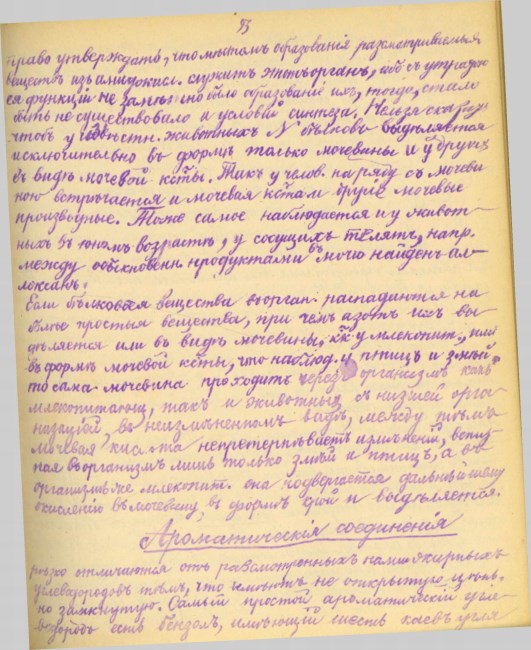 53
право утверждать, что мѣстомъ образованія разсматриваемыхъ
веществъ изъ амидокисл. служитъ этотъ органъ, ибо съ утратою
ея функціи не замѣтно было образованія ихъ, тогда, стало
быть не существовало и условій синтеза. Нельзя сказать,
чтобъ у извѣстн. животныхъ N бѣлковъ выдѣляется
исключительно въ формѣ только мочевины и у другихъ
въ видѣ мочевой к-ты. Такъ у челов. на ряду съ мочеви
ною встрѣчается и мочевая к-та и другіе мочевые
производные. Тоже самое наблюдается и у живот-
ныхъ въ юномъ возрастѣ, у сосущихъ телятъ, напр.
между обыкновенн. продуктами въ мочѣ найденъ ал-
локсанъ.
Если бѣлковыя вещества въ орган. распадаются на
болѣе простыя вещества, при чемъ азотъ ихъ вы
дѣляется или въ видѣ мочевины, кк. у млекопит., или
въ формѣ мочевой к-ты, что наблюд. у птицъ и змѣй,
то сама мочевина проходитъ черезъ организмъ какъ
млекопитающ., такъ и животныхъ съ низшей орга
низаціей, въ неизмѣненномъ видѣ, между тѣмъ
мочевая кис-та непретерпѣваетъ измѣненій, вступ
ная въ организмъ лишь только змѣй и птицъ, а въ
организмѣ же млекопит. она подвергается дальнѣйшему
окисленію въ мочевину, въ формѣ крой и выдѣляется.
Ароматическія соединенія
рѣзко отличаются отъ разсмотренныхъ нами жирныхъ
углеводородовъ тѣмъ, что имѣютъ не открытую цѣпь,
но замкнутую. Самый простой ароматическій угле-
водородъ есть бензолъ, имѣющій шесть паевъ угля